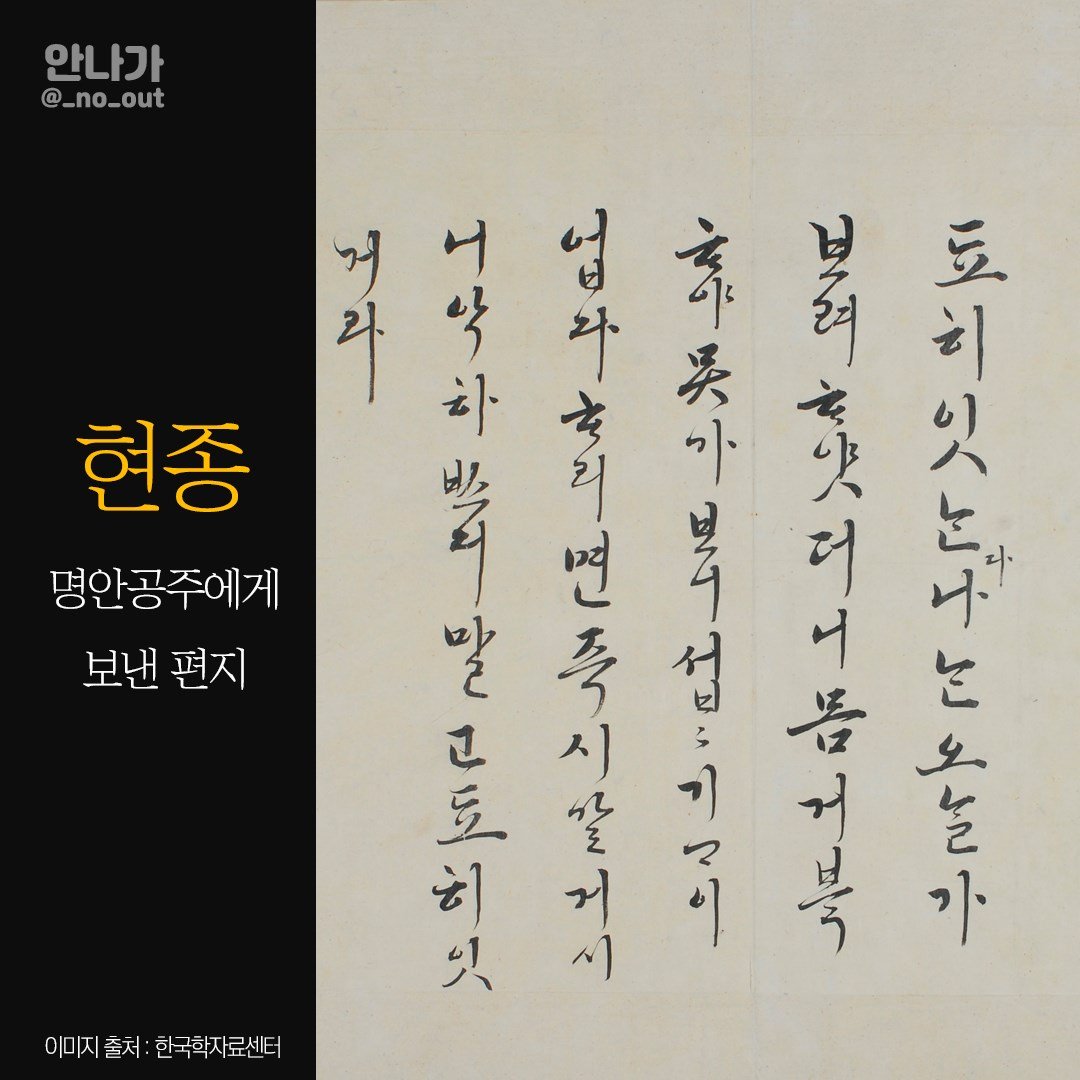 안나가
@_no_out
현종
명안공주에게
보낸 편지
이미지 출처 : 한국학자료센터
됴히잇ᄂᆞᆫ다나ᄂᆞᆫ오ᄂᆞᆯ가
보려ᄒᆞ얏더니몸거북
ᄒᆞ야못가보니섭〻기ᄀᆞ이
업다ᄒᆞ리면즉시알게시
니악하 말고됴히잇
거라